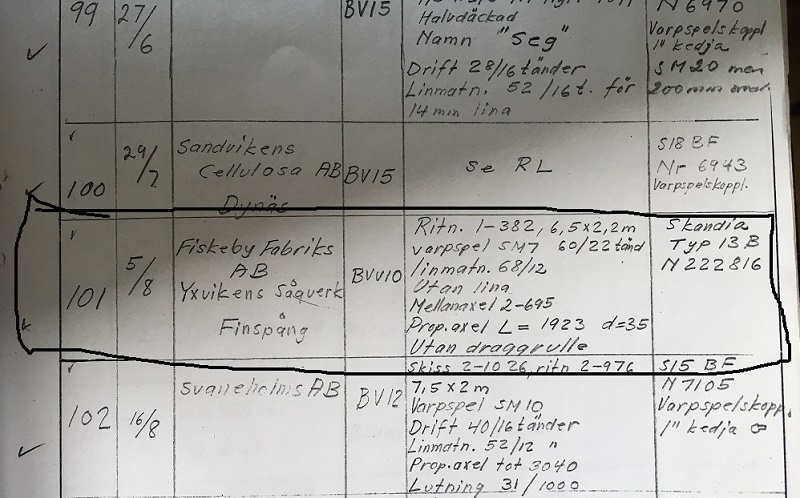 99
27/6
BV15
Halvdäckad
Namn "Seg"
Drift 28/16 tänder
Linmatn. 52/16 t. för
14 mm lina
N 6970
Varpspelskoppl
1" kedja
SM20 men
200 mm
100
29/7
Sandvikens
Cellulosa AB
Dynäs
BV15
se RL
S18 BF
Nr 6943
Varpspelskoppl.
101
5/8
Fiskeby Fabriks
AB
Yxvikens Sågverk
Finspång
BVV10
Ritn. 1-382, 6,5x2,2m
varpspel SM7 60/22 tänd
linmatn. 68/12
Utan lina
Mellanaxel 2-695
Prop.axel L = 1923 d=35
Utan draggrulle
Skandia
Typ 13 B
N 222816
102
16/8
Svaneholms AB
BV12
Skiss 2-1026, ritn 2-976
7,5x2m
Varpspel SM10
Drift 40/16 tänder
Linmatn. 52/12 "
Prop.axel tot 3040
Lutning 31/1000
S15 BF
N 7105
Varpspelskopp.
1" kedja